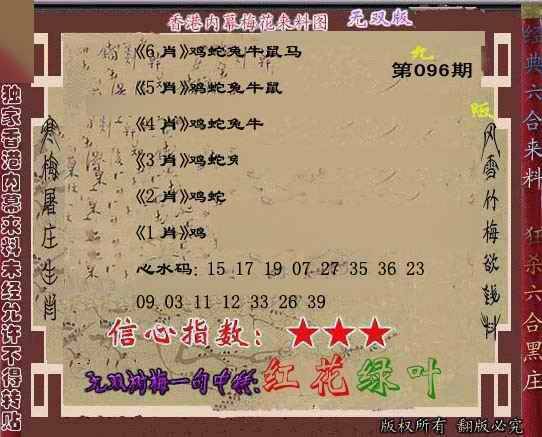 香港内幕梅花来料图 无双版
九
第096期
版
《6 肖》鸡蛇兔牛鼠马
《5 肖》鸡蛇兔牛鼠
《4 肖》鸡蛇兔牛
《3 肖》鸡蛇兔
《2 肖》鸡蛇
《1 肖》鸡
心水码: 15 17 19 07 27 35 36 23
09 03 11 12 33 26 39
信心指数: ★★★
无双鸿梅一句中特:红花绿叶
独家香港内幕来料未经允许不得转贴
寒梅屠庄生肖
风雪竹梅欲钱料
经典六合来料
狂杀六合黑庄
版权所有 翻版必究